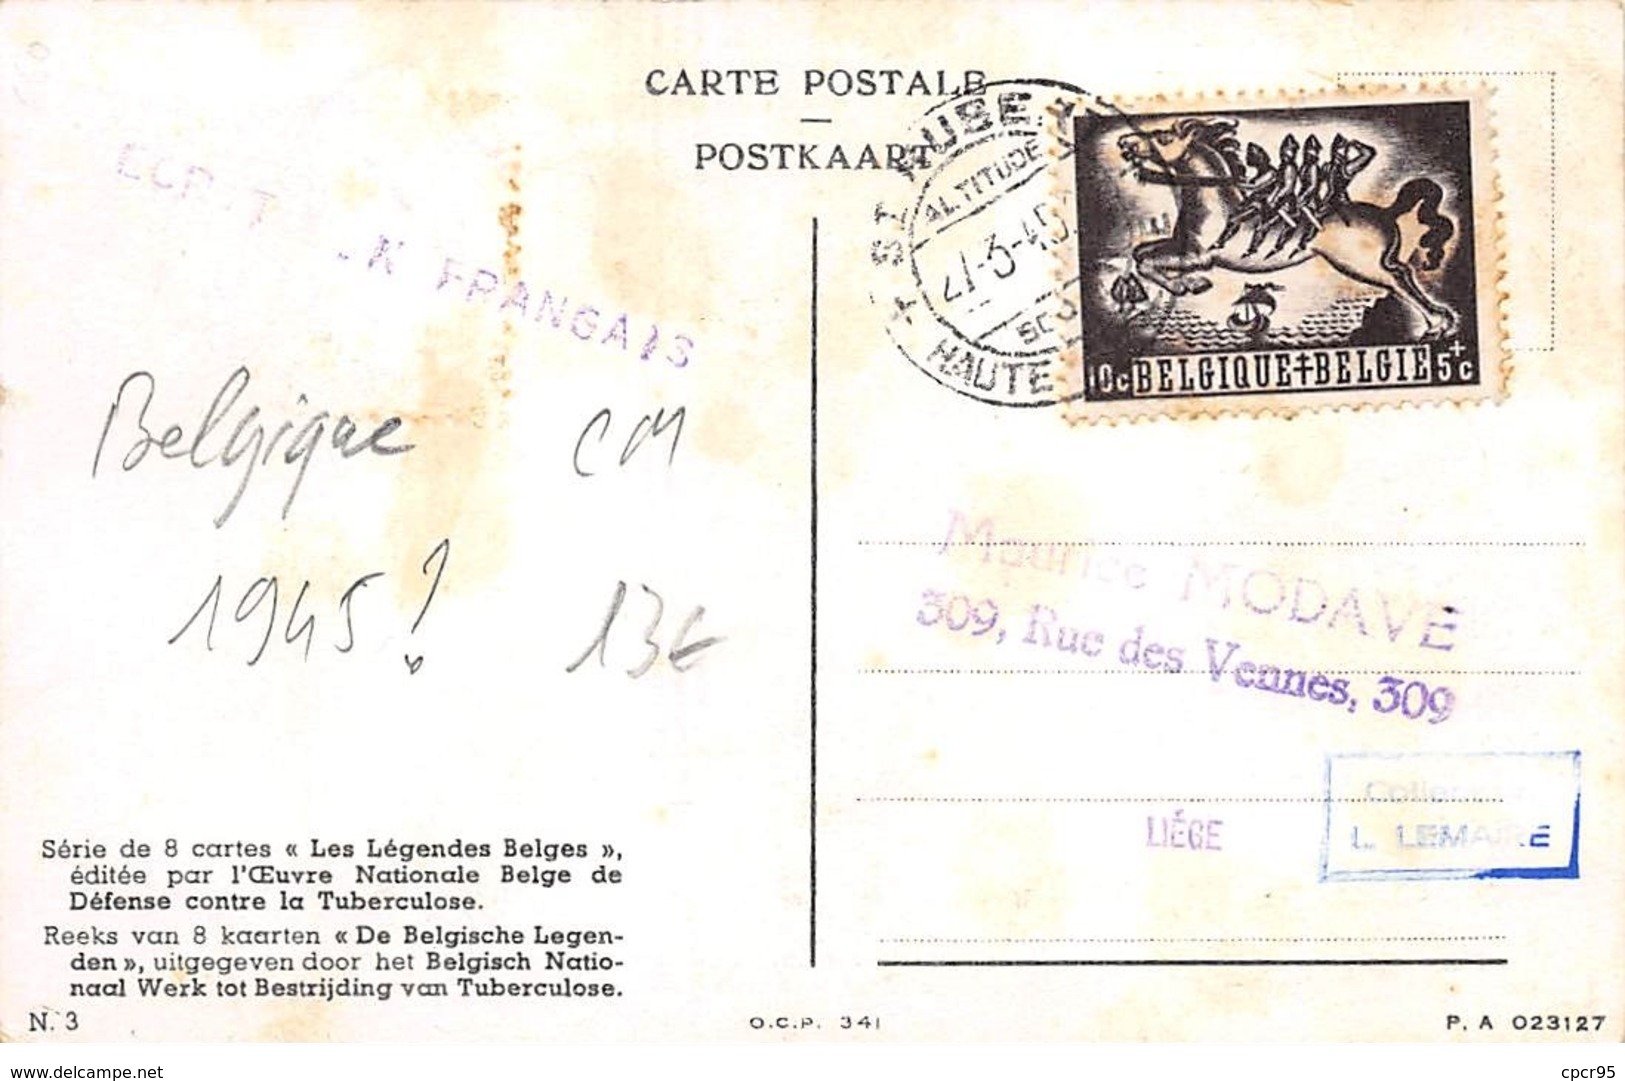 CARTE POSTALE
POSTKAART
FRANGAIS
ST HUBE
ALTITUDE
HAUTE
10c BELGIQUE BELGIE 5+c
Belgique CM
1945? 13€
Maurice MODAVE
309, Rue des Vennes, 309
LIÉGE
L. LEMAIRE
Série de 8 cartes « Les Légendes Belges »,
éditée par l'Œuvre Nationale Belge de
Défense contre la Tuberculose.
Reeks van 8 kaarten « De Belgische Legen-
den », uitgegeven door het Belgisch Natio-
naal Werk tot Bestrijding van Tuberculose.
N. 3
O.C.P. 341
P. A 023127
www.delcampe.net
cpcr95